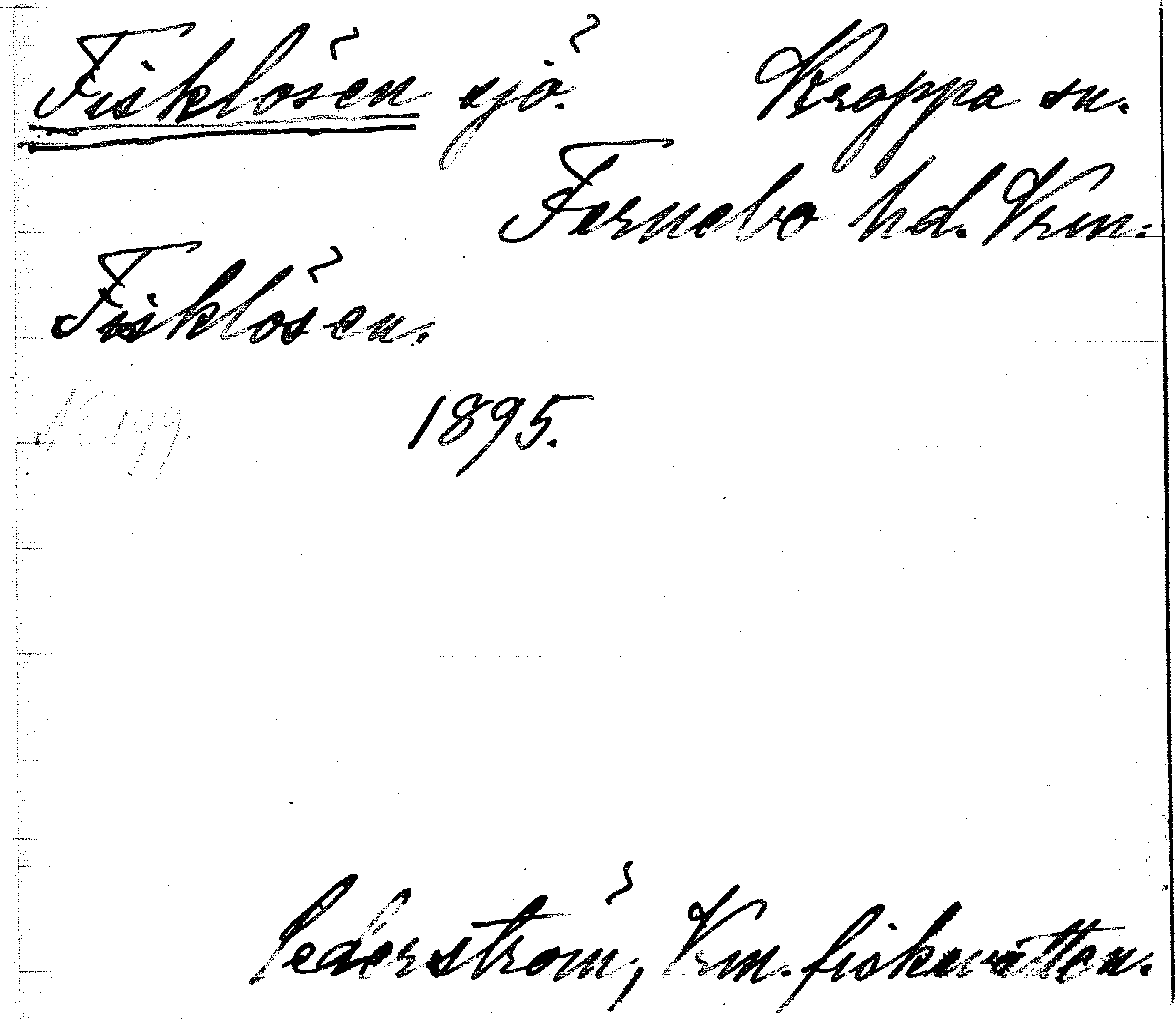 Fisklösen sjö. Kroppa sn.
Fernebo hd. Vrm.
Fisklösen.
1895.
Cederström, Vrm. fiskevatten.